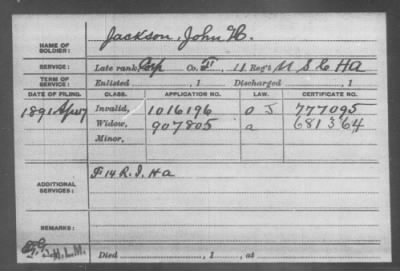 NAME OF SOLDIER: Jackson, John H.
SERVICE: Late rank, Corp Co. 11 Reg't U S C HA
TERM OF SERVICE: Enlisted , 1 Discharged , 1
DATE OF FILING. CLASS. APPLICATION NO. LAW. CERTIFICATE NO.
1891 Apr 7 Invalid, 1016196 O J 777095
Widow, 907805 a 681364
Minor,
ADDITIONAL SERVICES: F 14 R. I. Ha
REMARKS:
Died , 1 , at